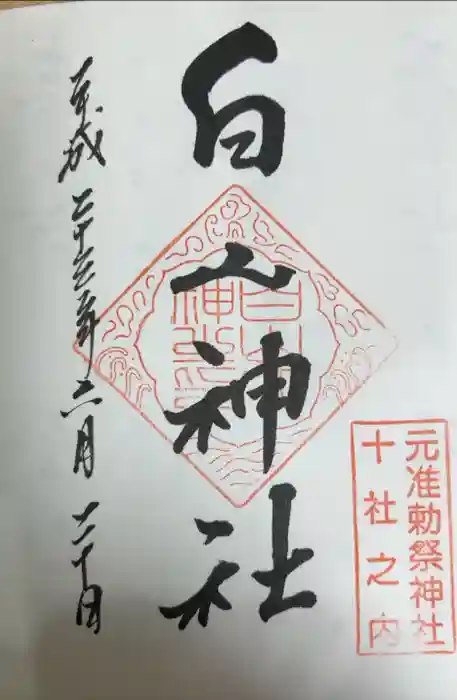 元准勅祭神社
十社之内
白山神社
平成二十三年六月二十日